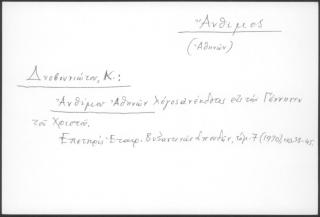 Ἄνθιμος
(Ἀθηνῶν)
Δυοβουνιώτου, Κ.:
Ἀνθίμου Ἀθηνῶν λόγος ἀνέκδοτος εἰς τὴν Γέννησιν
τοῦ Χριστοῦ.
Ἐπετηρὶς Ἑταιρ. Βυζαντινῶν Σπουδῶν, τόμ. 7 (1930)